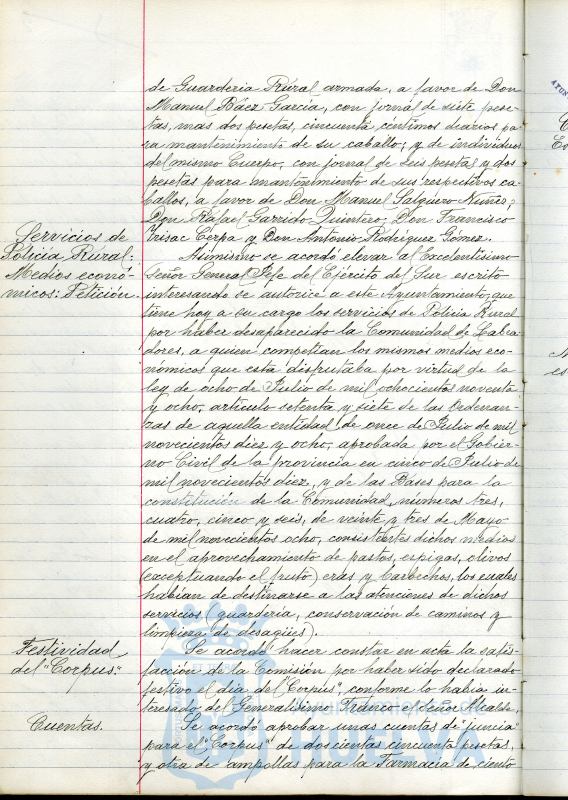 de Guarderia Rural armada, a favor de Don
Manuel Báez García, con jornal de siete pese-
tas, mas dos pesetas, cincuenta céntimos diarios pa-
ra mantenimiento de su caballo; y de individuos
del mismo Cuerpo, con jornal de seis pesetas y dos
pesetas para mantenimiento de sus respectivos ca-
ballos, a favor de Don Manuel Salguero Nuñez;
Don Rafael Garrido Quintero; Don Francisco
Cerpa y Don Antonio Rodríguez Gómez.
Servicios de
Policia Rural:
Medios econó-
micos: Petición.
Asimismo se acordó elevar al Excelentísimo
Señor General Jefe del Ejército del Sur escrito
interesando se autorice a este Ayuntamiento, que
tiene hoy a su cargo los servicios de Policia Rural
por haber desaparecido la Comunidad de Labra-
dores, a quien competian los mismos medios eco-
nómicos que esta disfrutaba por virtud de la
ley de ocho de Julio de mil ochocientos noventa
y ocho, artículo setenta y siete de las Ordenan-
zas de aquella entidad, de once de Julio de mil
novecientos diez y ocho, aprobada por el Gobier-
no Civil de la provincia en cinco de Julio de
mil novecientos diez, y de las Bases para la
constitución de la Comunidad, números tres,
cuatro, cinco y seis, de veinte y tres de Mayo
de mil novecientos ocho, consistentes dichos medios
en el aprovechamiento de pastos, espigas, olivos
(exceptuando el fruto) eras y barbechos, los cuales
habian de destinarse a las atenciones de dichos
servicios (guarderia, conservación de caminos y
limpieza de desagües).
Festividad
del "Corpus".
Se acordó hacer constar en acta la satis-
facción de la Comisión por haber sido declarado
festivo el día del "Corpus", conforme lo habia in-
teresado del Generalísimo Franco el señor Alcalde.
Cuentas.
Se acordó aprobar unas cuentas de "juncia"
para el "Corpus" de doscientas cincuenta pesetas,
y otra de ampollas para la Farmacia de ciento